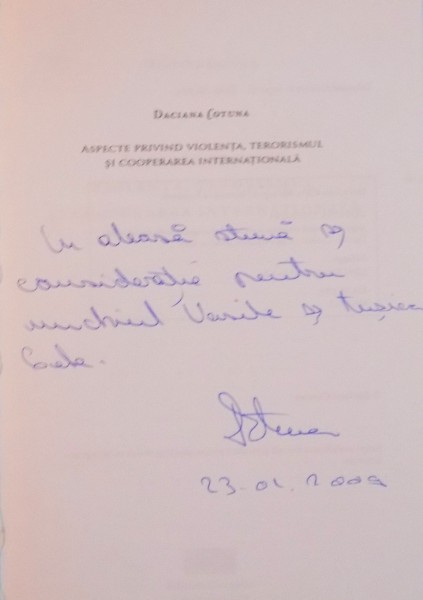 DACIANA COTUNA
ASPECTE PRIVIND VIOLENȚA, TERORISMUL
ȘI COOPERAREA INTERNAȚIONALĂ
Cu aleasă stimă și
considerație pentru
unchiul Vasile și tușica
23.01.2009